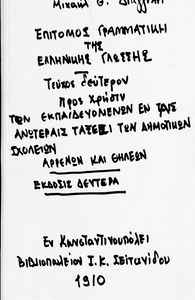 Μιχαήλ Θ.
ΕΠΙΤΟΜΟΣ ΓΡΑΜΜΑΤΙΚΗ
ΤΗΣ
ΕΛΛΗΝΙΚΗΣ ΓΛΩΣΣΗΣ
Τεύχος δεύτερον
Προς χρήσιν
ΤΩΝ ΕΚΠΑΙΔΕΥΟΜΕΝΩΝ ΕΝ ΤΑΙΣ
ΑΝΩΤΕΡΑΙΣ ΤΑΞΕΣΙ ΤΩΝ ΔΗΜΟΤΙΚΩΝ
ΣΧΟΛΕΙΩΝ
ΑΡΡΕΝΩΝ ΚΑΙ ΘΗΛΕΩΝ
ΕΚΔΟΣΙΣ ΔΕΥΤΕΡΑ
Εν Κωνσταντινουπόλει
Βιβλιοπωλείον Ι. Κ. Σεϊτανίδου
1910